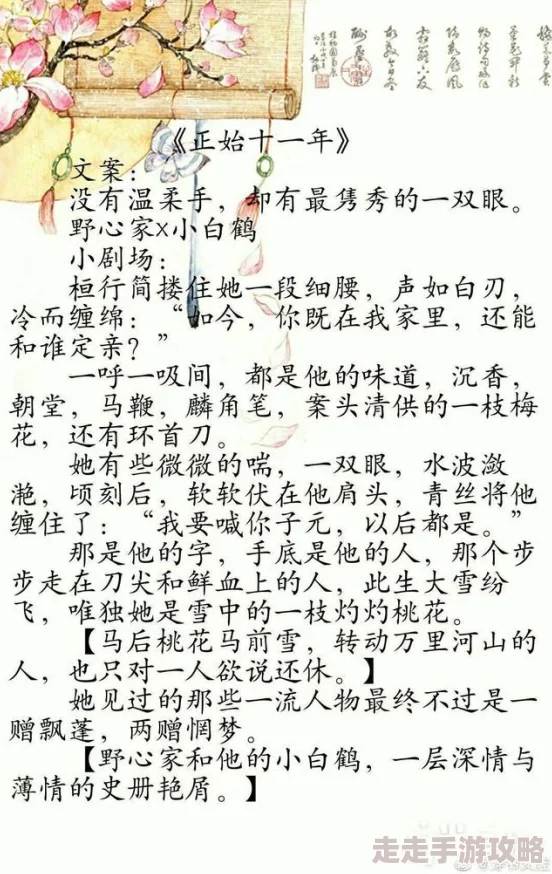 《正始十一年》
文案：
没有温柔手，却有最隽秀的一双眼。
野心家x小白鹤
小剧场：
桓行简搂住她一段细腰，声如白刃，
冷而缠绵：“如今，你既在我家里，还能
和谁定亲？”
一呼一吸间，都是他的味道，沉香，
朝堂，马鞭，麟角笔，案头清供的一枝梅
花，还有环首刀。
她有些微微的喘，一双眼，水波潋
滟，顷刻后，软软伏在他肩头，青丝将他
缠住了：“我要喊你子元，以后都是。”
那是他的字，手底是他的人，那个步
步走在刀尖和鲜血上的人，此生大雪纷
飞，唯独她是雪中的一枝灼灼桃花。
【马后桃花马前雪，转动万里河山的
人，也只对一人欲说还休。】
她见过的那些一流人物最终不过是一
赠飘蓬，两赠惘梦。
【野心家和他的小白鹤，一层深情与
薄情的史册艳屑。】
走走手游攻略